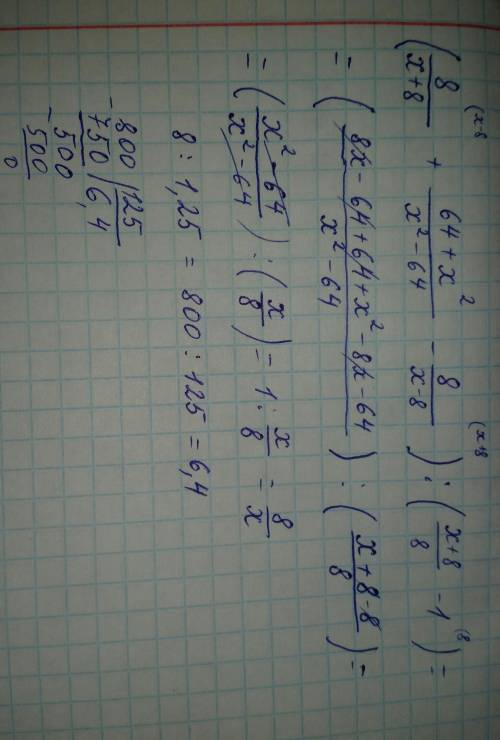 ( 8/(x+8) ^(x-8 + (64+x²)/(x²-64) - 8/(x-8) ^(x+8 ) : ( (x+8)/8 - 1 ^(8 ) =
= ( (8x-64+64+x²-8x-64)/(x²-64) ) : ( (x+8-8)/8 ) =
= ( (x²-64)/(x²-64) ) : ( x/8 ) = 1 : x/8 = 8/x
8 : 1,25 = 800 : 125 = 6,4
-800 | 125
750 | 6,4
-500
500
0